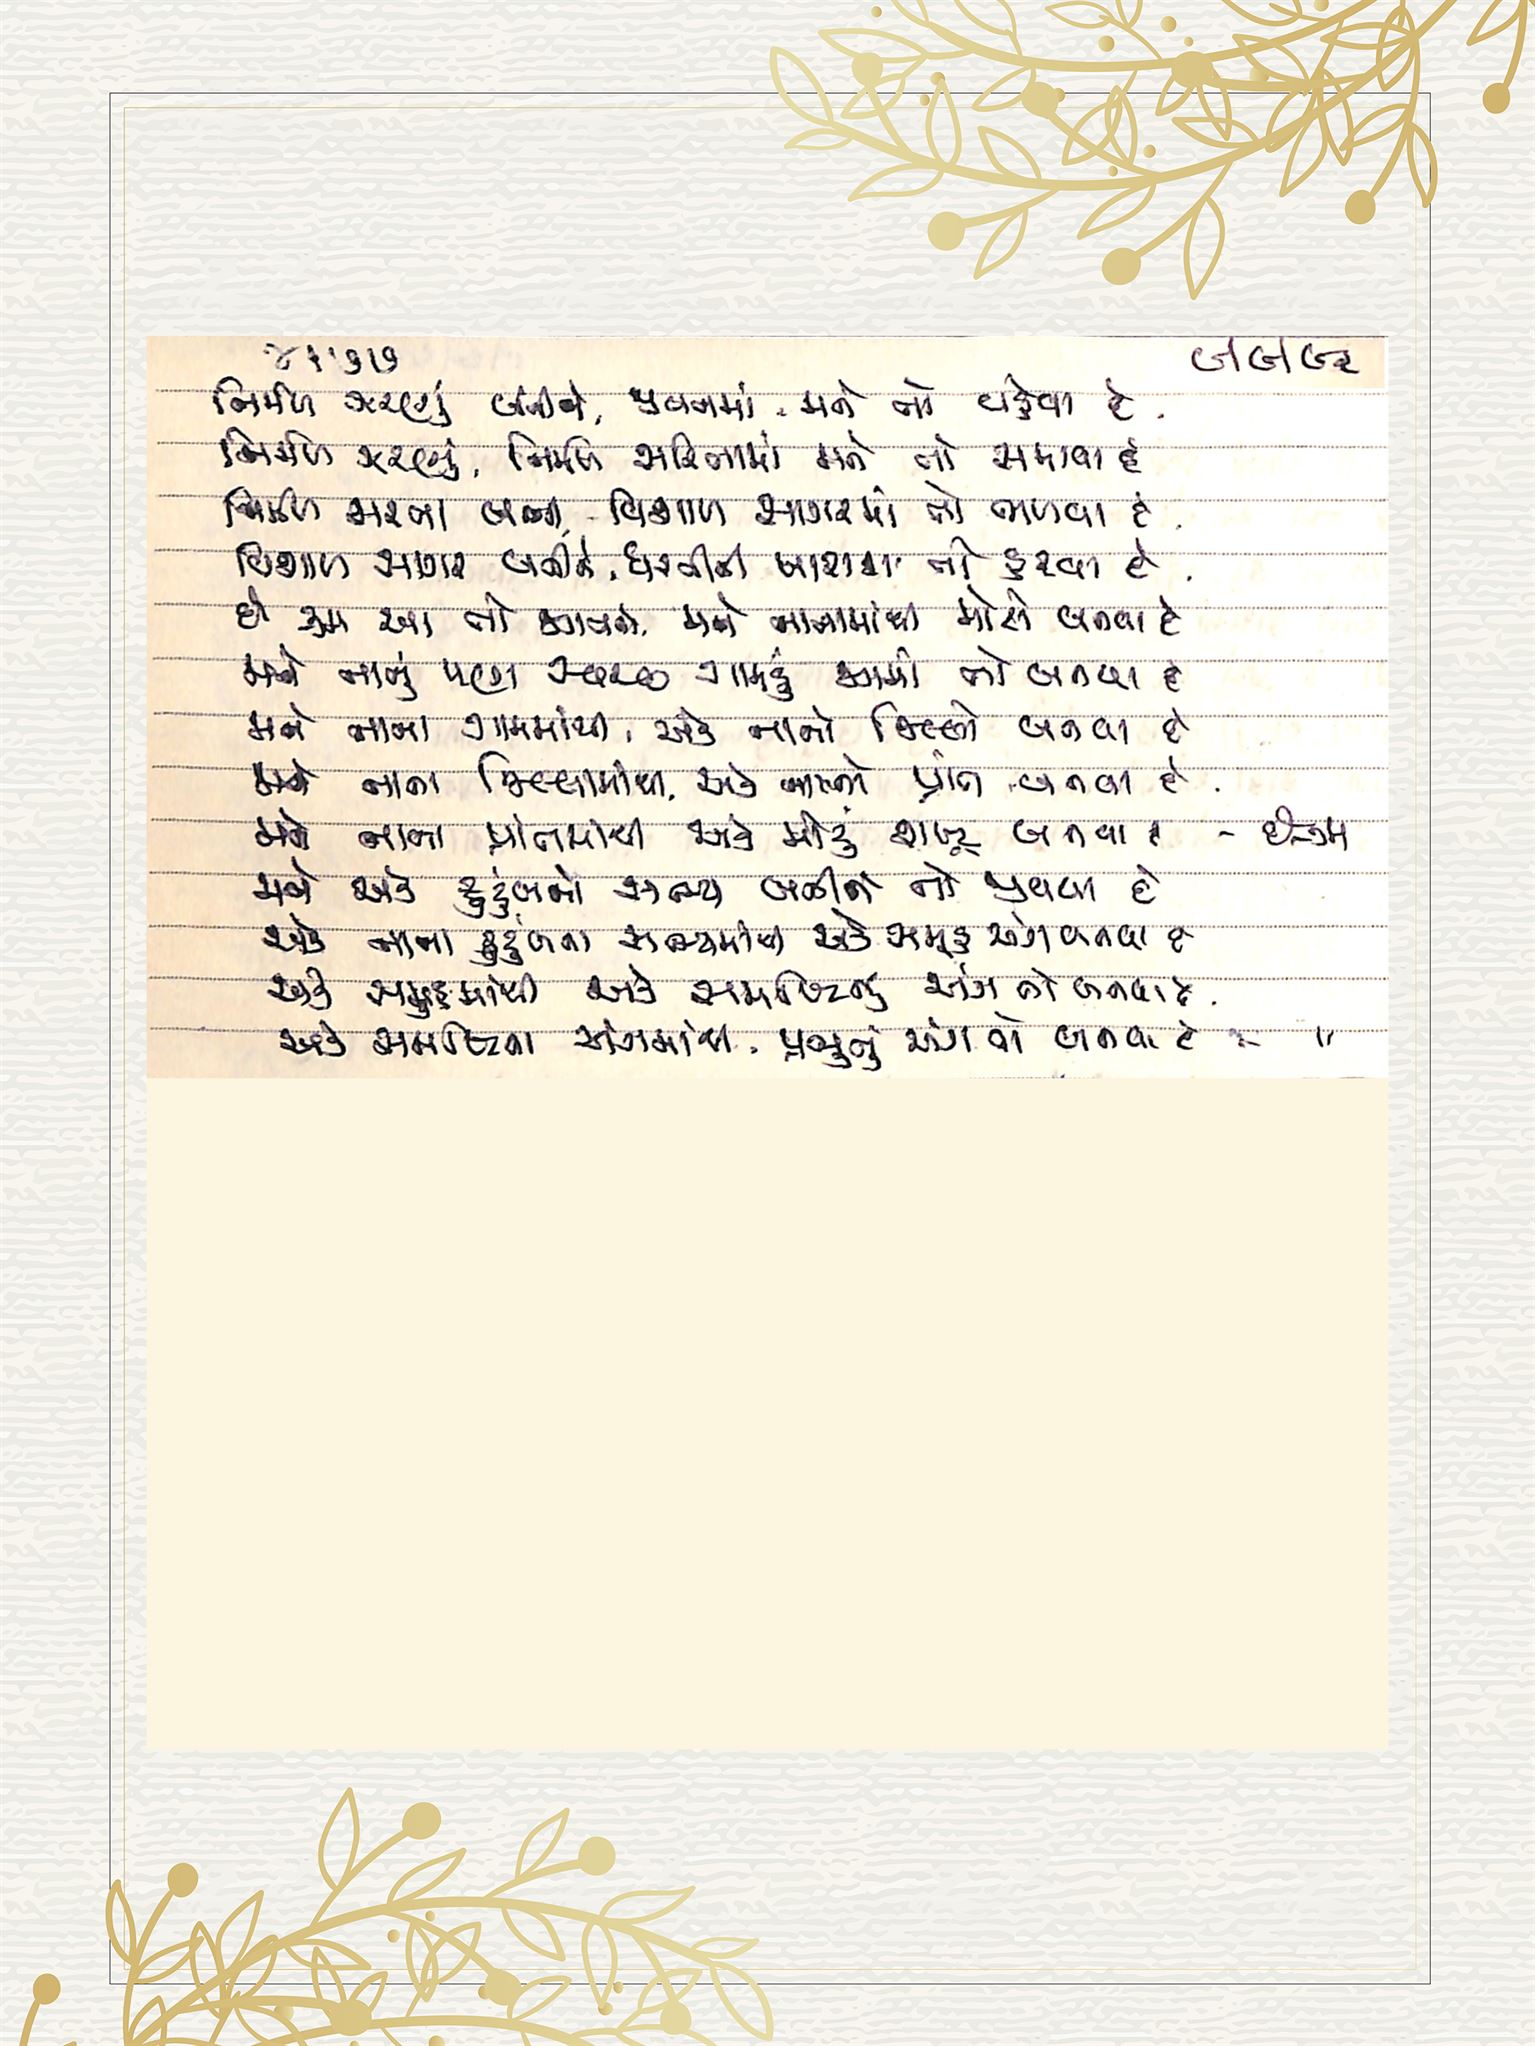 નિર્મળ ઝરણું બનીને, પવનમાં મને તો વહેવા દે.
નિર્મળ ઝરણું, નિર્મળ સરિતામાં મને તો સમાવા દે
નિર્મળ સરતા બની વિશાળ સાગરમાં તો ભળવા દે.
વિશાળ સાગર બનીને, ધરતીની તો ફરવા દે.
હો આ તો મને નાનામાંથી મોટો બનવા દે
મને નાનું પણ સ્વચ્છ ગામડું તો બનવા દે
મને નાના ગામમાંથી, એક નાનો જિલ્લો બનવા દે
મને નાના જિલ્લામાંથી, એક નાનો પ્રાંત બનવા દે.
મને નાના પ્રાંતમાંથી એક મોટું રાષ્ટ્ર બનવા દે -
મને એક કુટુંબનો સભ્ય બનીને તો દે
એક નાના કુટુંબના સભ્યમાંથી એક સમૂહ અંગ બનવા દે
એક સમૂહમાંથી એક સમષ્ટિનું અંગ તો બનવા દે.
એક સમષ્ટિના અંગમાંથી, પ્રભુનું અંગ તો બનવા દે - "